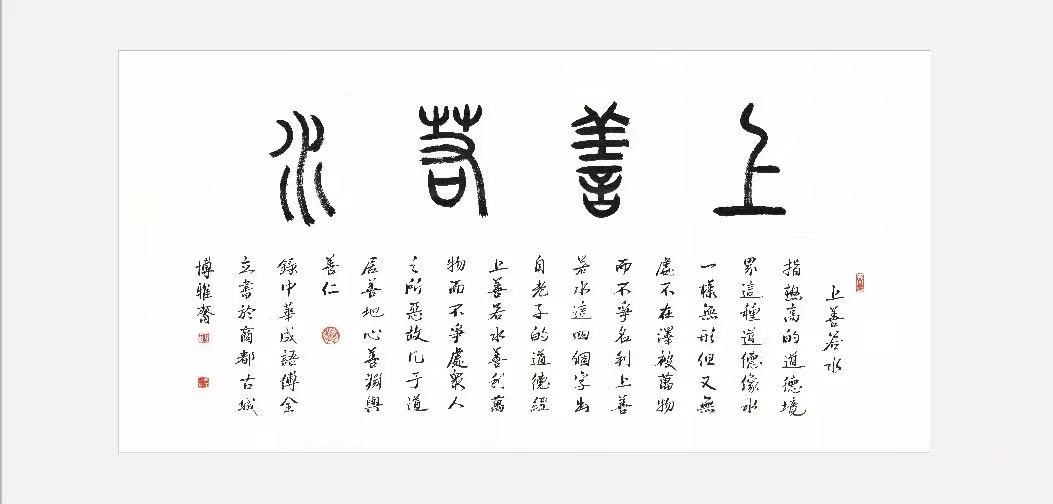 上善若水
上善若水
指越高的道德境
界這種道德像水
一樣無形但又無
處不在澤被萬物
而不爭名利上善
若水這四個字出
自老子的道德經
上善若水善利萬
物而不爭處眾人
之所惡故几于道
居善地心善淵與
善仁
錄中華成語傅金
立書於商都古城
博雅齋